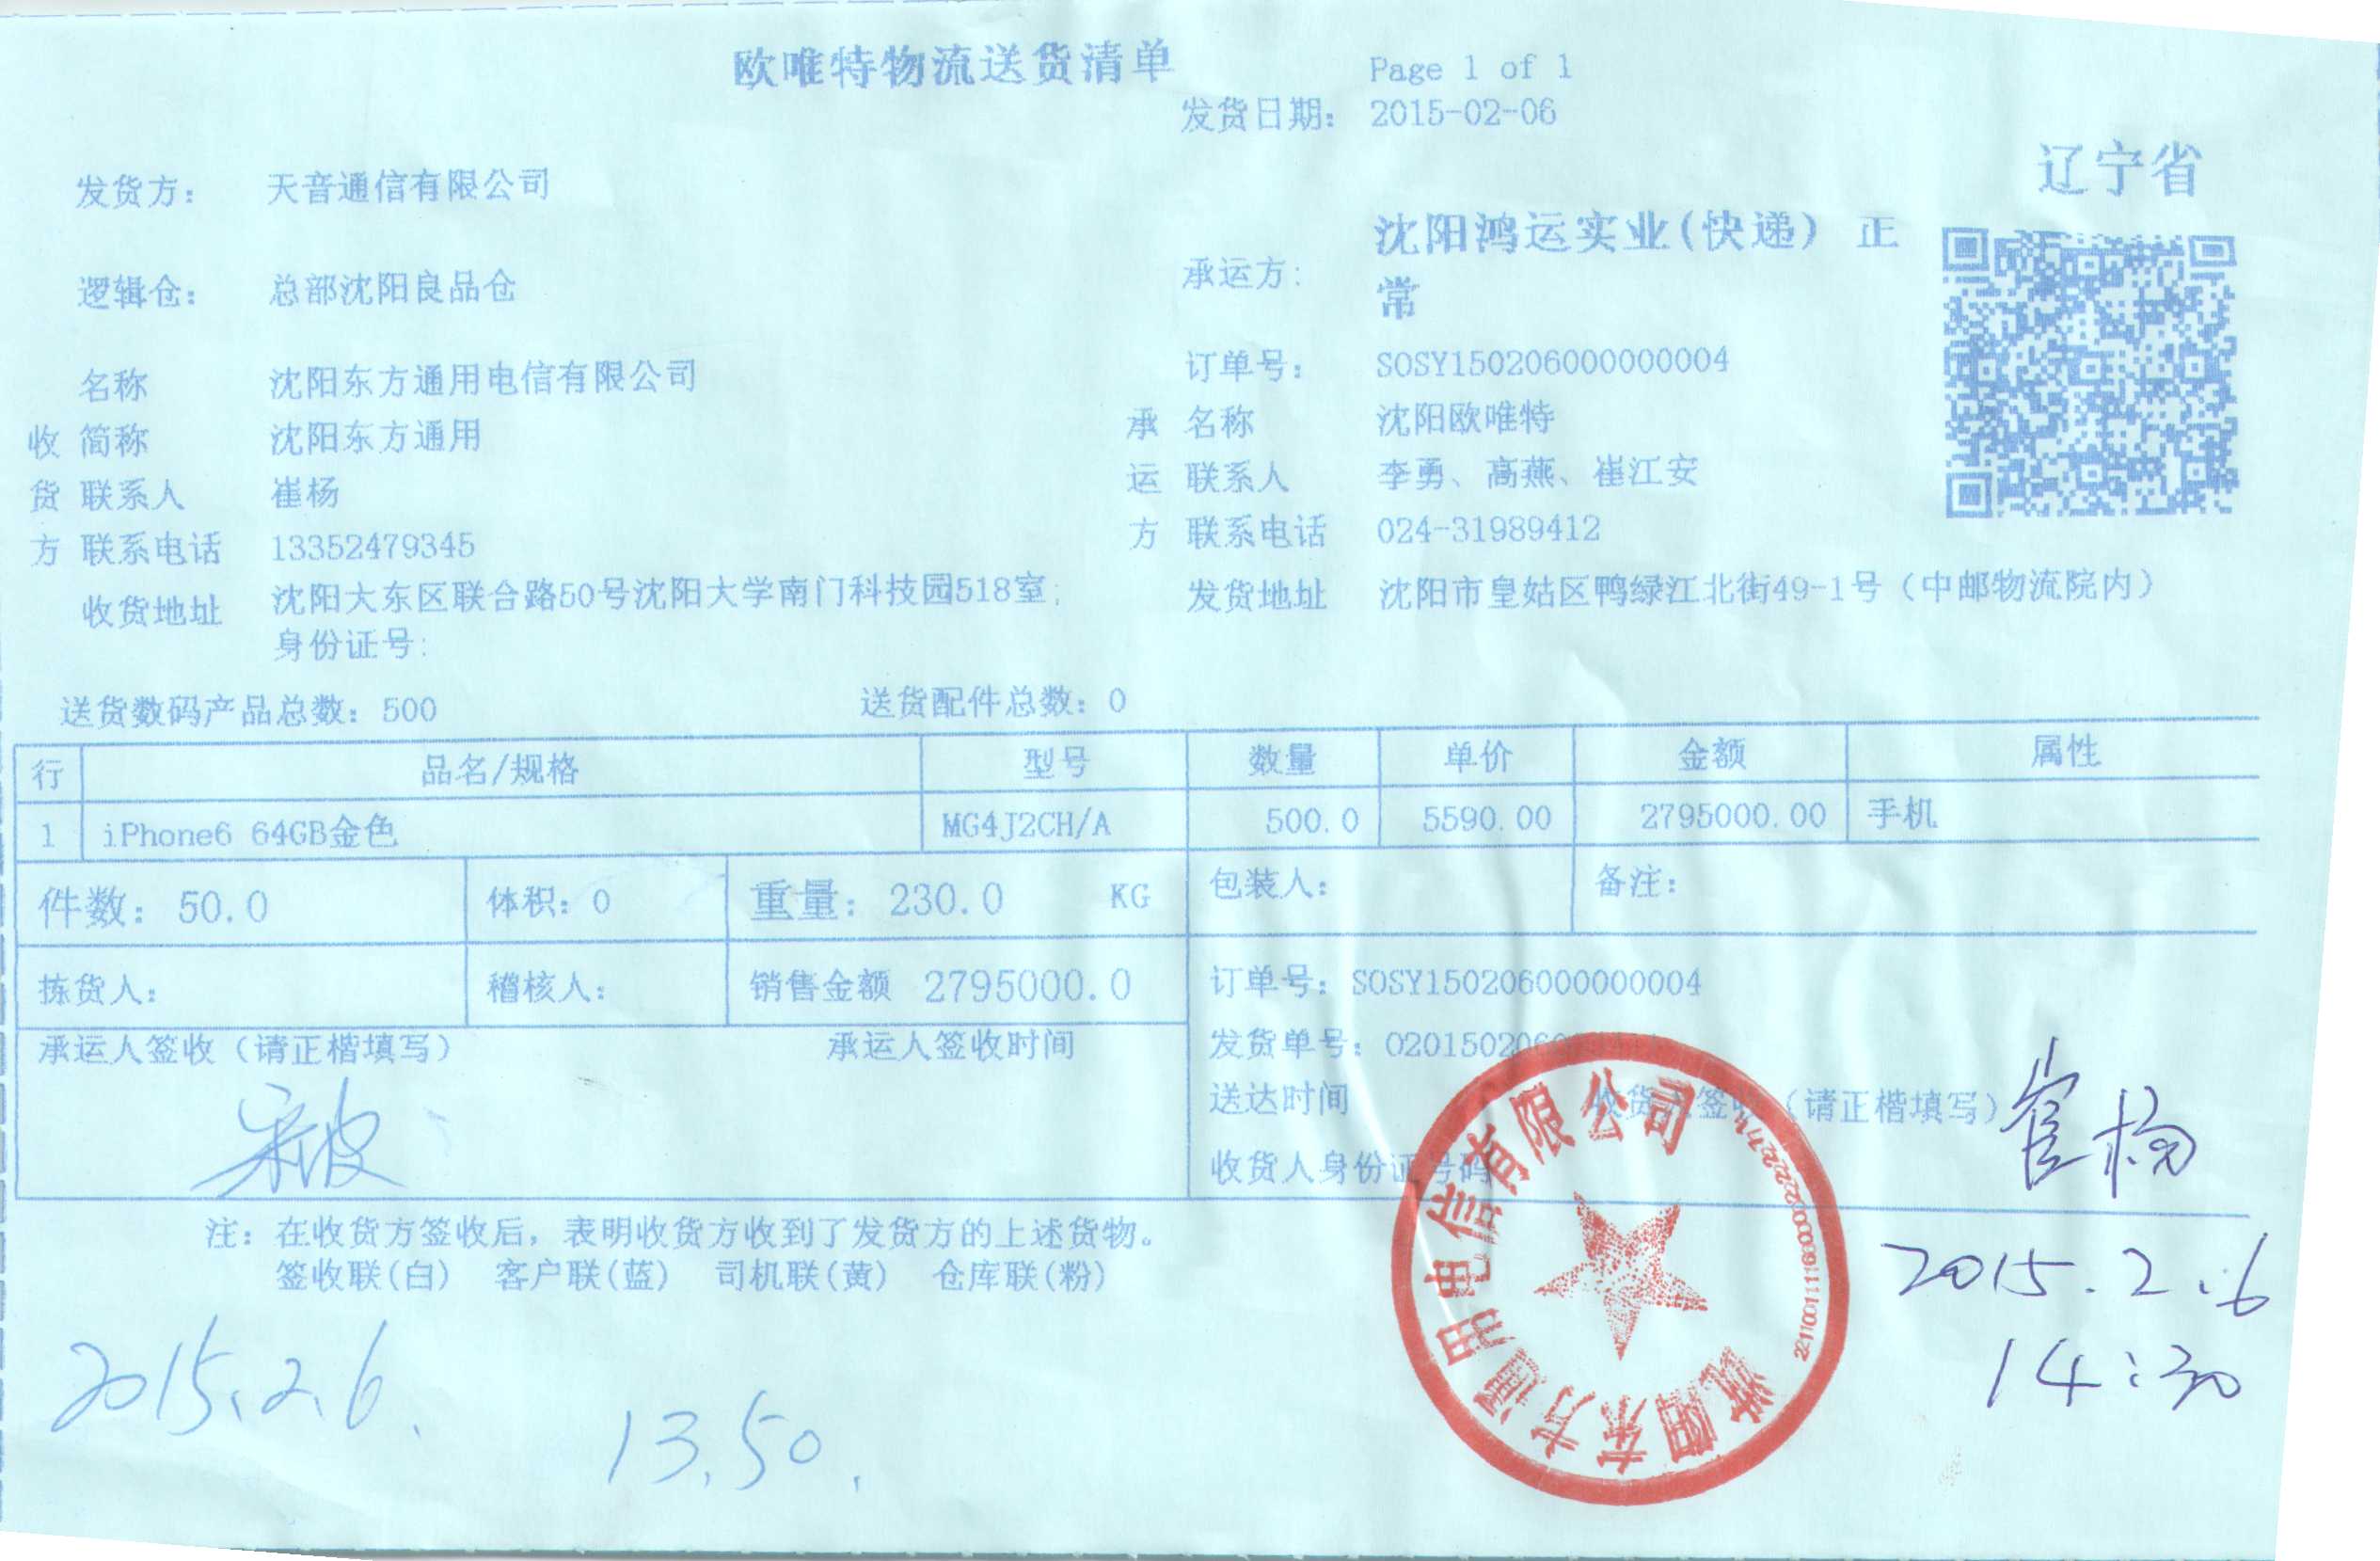 欧唯特物流送货清单 Page 1 of 1
发货日期： 2015-02-06
辽宁省
发货方： 天音通信有限公司
承运方： 沈阳鸿运实业(快递) 正
常
逻辑仓： 总部沈阳良品仓
名称 沈阳东方通用电信有限公司 订单号： SOSY150206000000004
收 简称 沈阳东方通用 承 名称 沈阳欧唯特
货 联系人 崔杨 运 联系人 李勇、高燕、崔江安
方 联系电话 13352479345 方 联系电话 024-31989412
收货地址 沈阳大东区联合路50号沈阳大学南门科技园518室; 发货地址 沈阳市皇姑区鸭绿江北街49-1号（中邮物流院内）
身份证号:
送货数码产品总数：500 送货配件总数：0
行 品名/规格 型号 数量 单价 金额 属性
1 iPhone6 64GB金色 MG4J2CH/A 500.0 5590.00 2795000.00 手机
件数：50.0 体积：0 重量：230.0 KG 包装人： 备注：
拣货人： 稽核人： 销售金额 2795000.0 订单号：SOSY150206000000004
承运人签收（请正楷填写） 承运人签收时间 发货单号：
送达时间 收货人签收（请正楷填写） 崔杨
收货人身份证号码
注：在收货方签收后，表明收货方收到了发货方的上述货物。
签收联(白) 客户联(蓝) 司机联(黄) 仓库联(粉)
2015.2.6
14:30
2015.2.6.
13.50.
沈阳东方通用电信有限公司